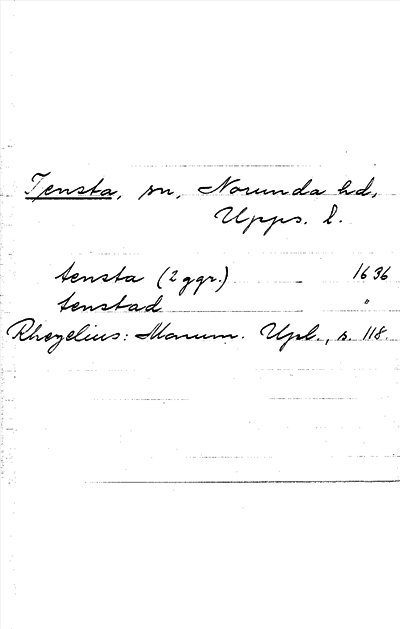 Tensta, sn, Norunda hd,
Upps. l.
tensta (2 ggr.) 1636
tenstad "
Rhezelius: Monum. Upl., s. 118.